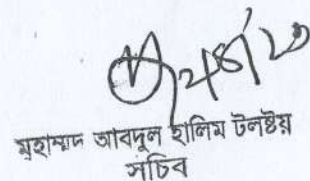 মুহাম্মদ আবদুল হালিম টলষ্টয়
সচিব